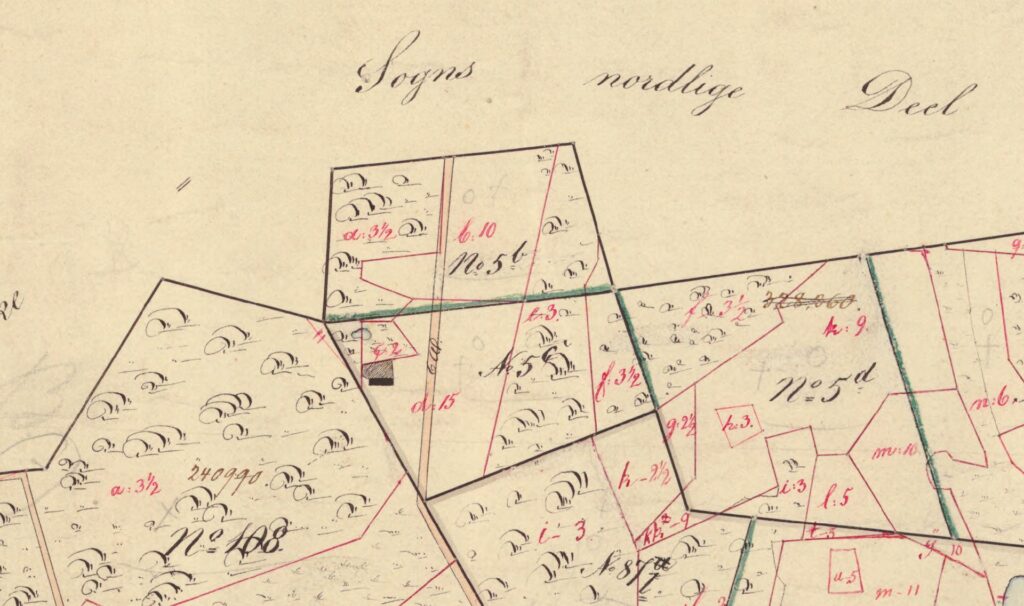 Sogns nordlige Deel
a: 3½
b: 10
No 5b
f: 3½
328.060
k: 9.
g
e: 3.
c: 2
No 5c
f: 3½
No 5d
d: 15
g: 2½
h: 3.
n: 6
m: 10
240990
a: 3½
k - 2½
i: 3
l: 5
No 108
i - 3
t: 3
10
No 87a
u: 5
m - 11